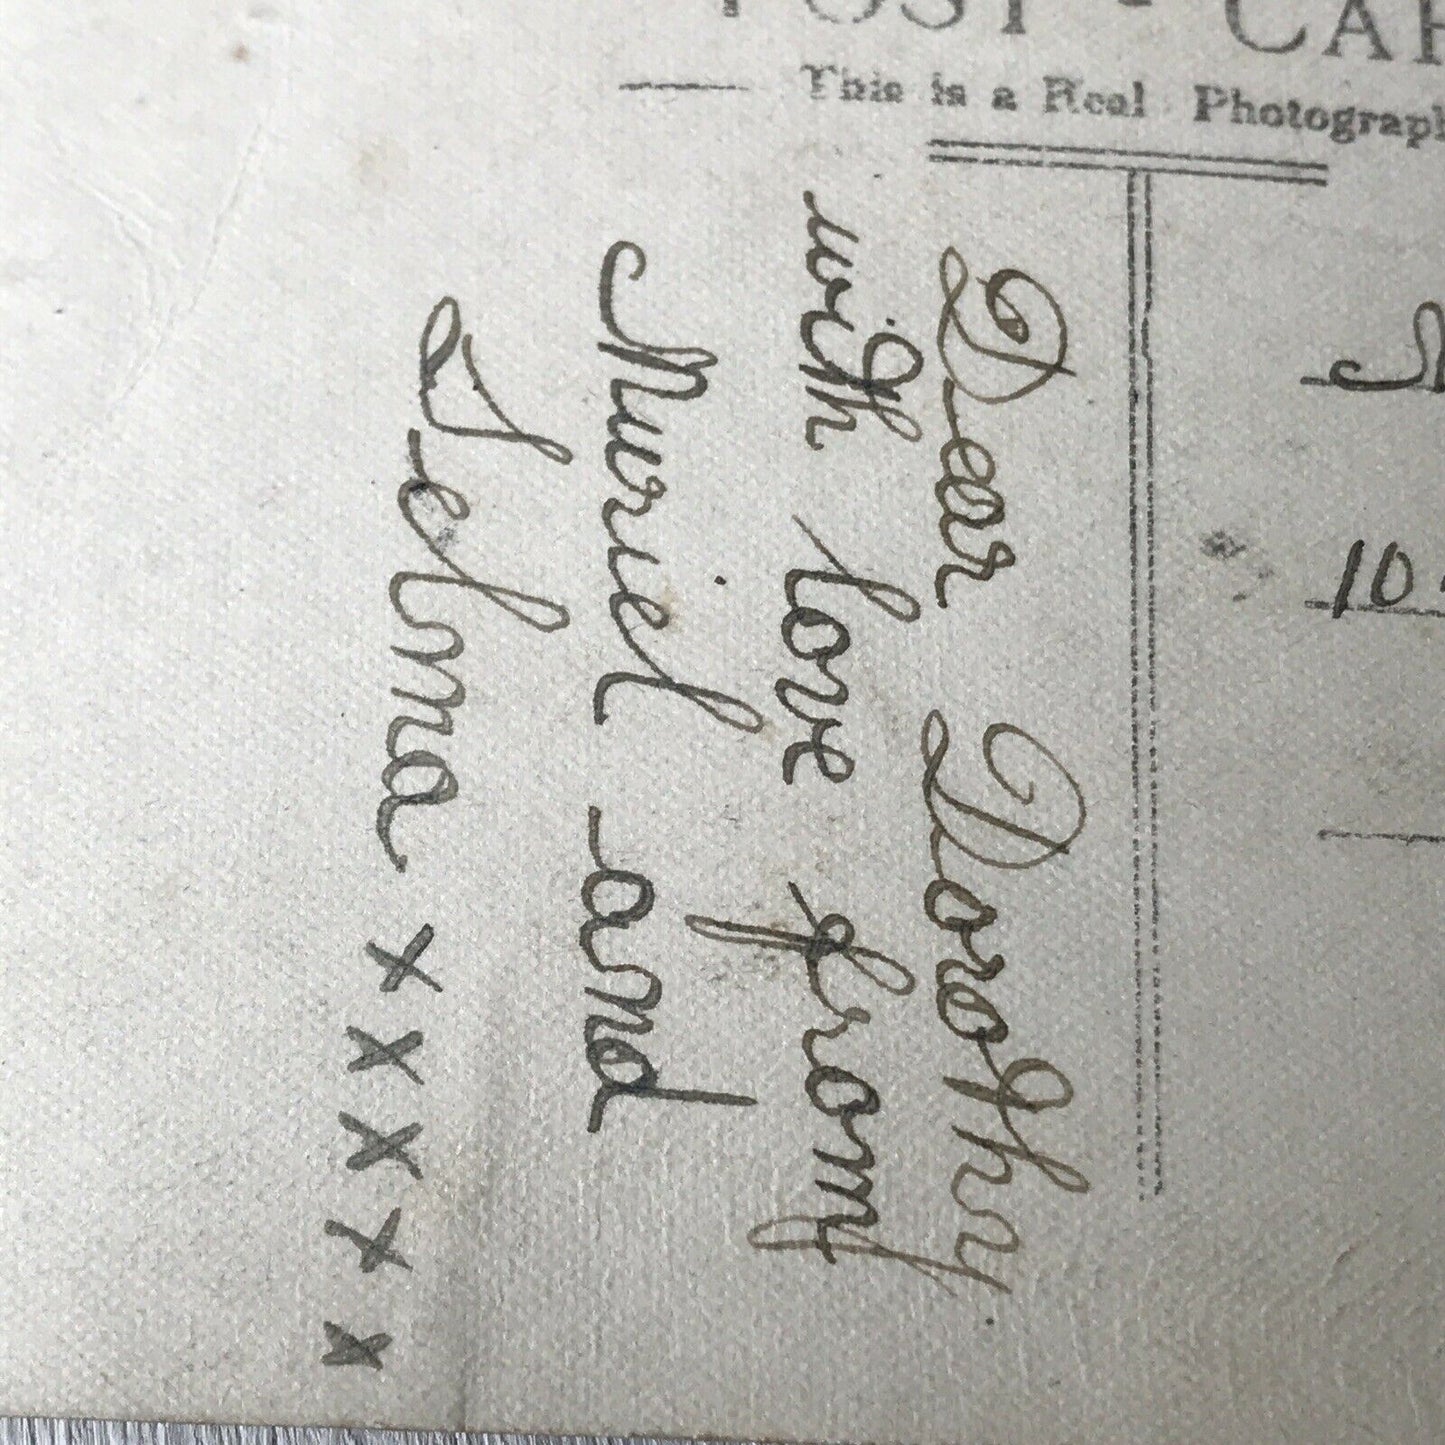 POST - CAR
This is a Real Photograph
Dear Dorothy.
with love from
Muriel and
Selma x x x x x
10